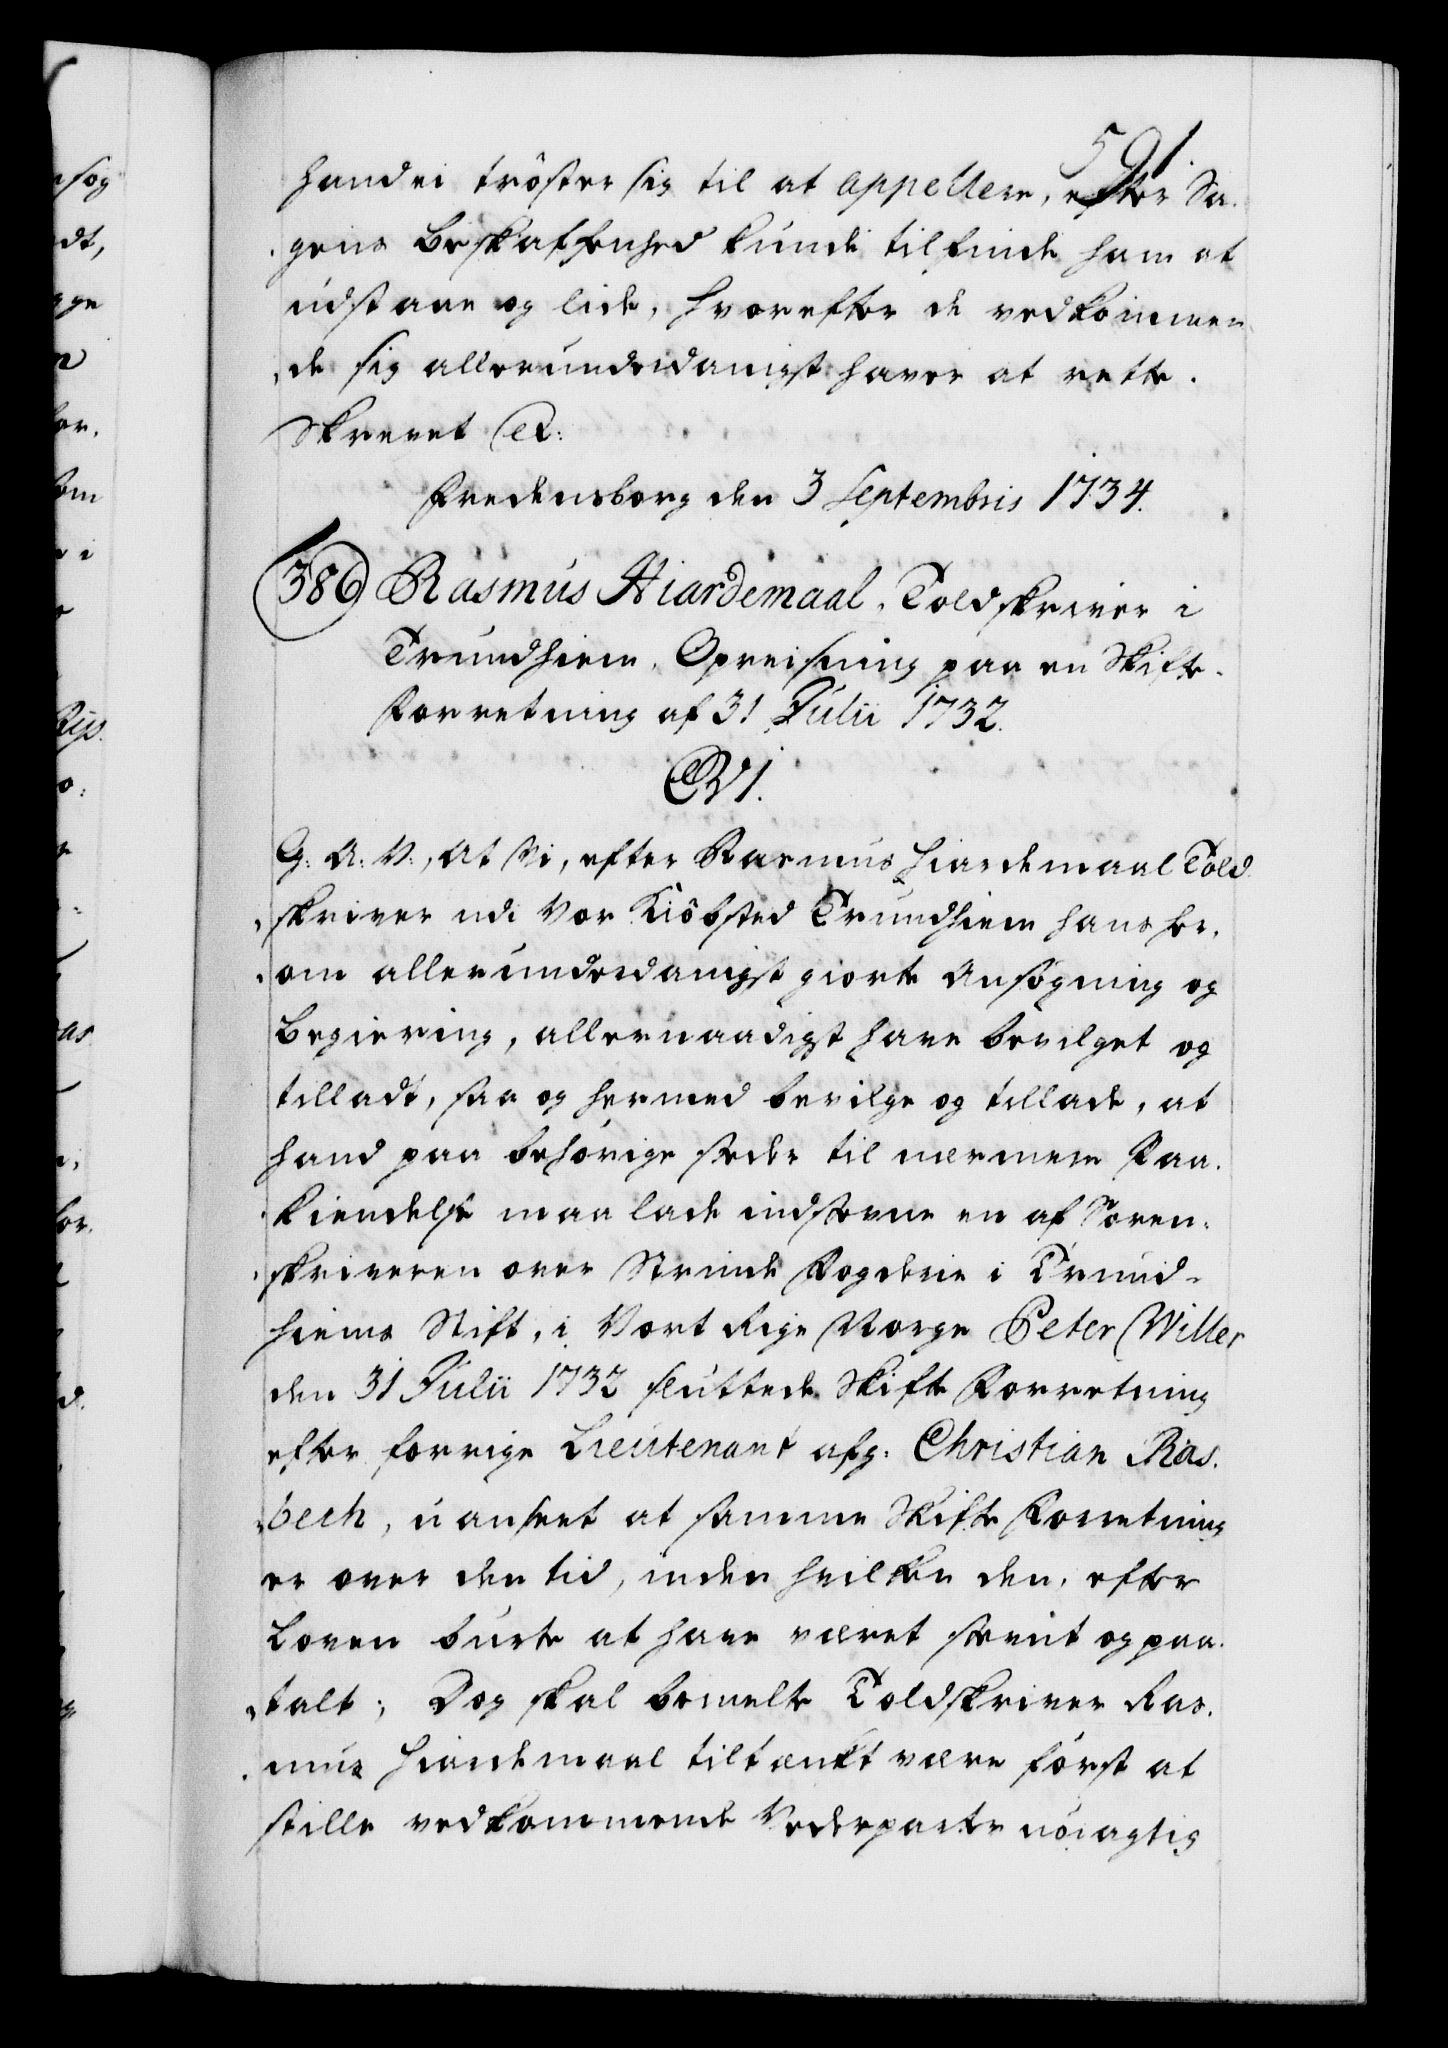 591.
hand ei tröster sig til at appellere, efter Sa-
gens Beskaffenhed kunde tilfinde ham at
udstaae og lide, hvorefter de vedkommen-
de sig allerunderdanigst haver at rette.
Skrevet etc:
Fredensborg den 3 Septembris 1734.
386 Rasmus Hiardemaal, Toldskriver i
Trundhiem, Opreisning paa en Skifte-
Forretning af 31 Julii 1732.
C6.
G: A: V:, At Vi, efter Rasmus Hiardemaal Told-
skriver udi Vor Kiöbsted Trundhiem hans her-
om allerunderdanigst giorte Ansögning og
Begiering, allernaadigst have bevilget og
tilladt, saa og hermed bevilge og tillade, at
hand paa behörige steder til nærmere Paa-
kiendelse maa lade indstevne en af Soren-
skriveren over Strinde Fogderie i Trund-
hiems Stift, i Vort Rige Norge Peter Willer
den 31 Julii 1732 sluttede Skifte Forretning
efter forrige Lieutenant afg: Christian Ras-
bech, uanseet at samme Skifte Forretning
er over den tid, inden hvilken den, efter
Loven burte at have været stevnt og paa-
talt; Dog skal bemelte Toldskriver Ras-
mus Hiardemaal tiltænkt være först at
stille vedkommende Vederparter nöiagtig